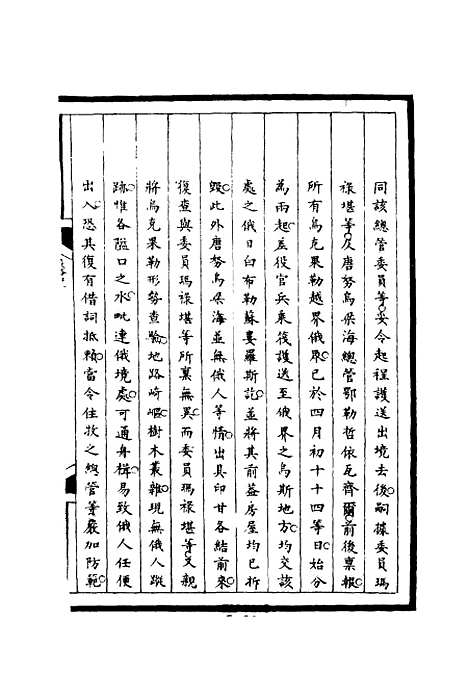 同該總管委員等妥令起程護送出境去後嗣據委員瑪
祿堪等及唐努烏梁海總管鄂勒哲依瓦齊爾前後稟報
所有烏克果勒越界俄眾已於四月初十十四等日始分
為兩起差役官兵乘筏護送至俄界之烏斯地方均交該
處之俄目白布勒蘇婁羅斯訖並將其前蓋房屋均已拆
毀此外唐努烏梁海並無俄人等情出具印甘各結前來
復查與委員瑪祿堪等所稟無異而委員瑪祿堪等又親
將烏克果勒形勢查驗地路崎嶇樹木叢雜現無俄人蹤
跡惟各隘口之水毗連俄境處可通舟楫易致俄人任便
出入恐其復有借詞抵賴當令住牧之總管等嚴加防範